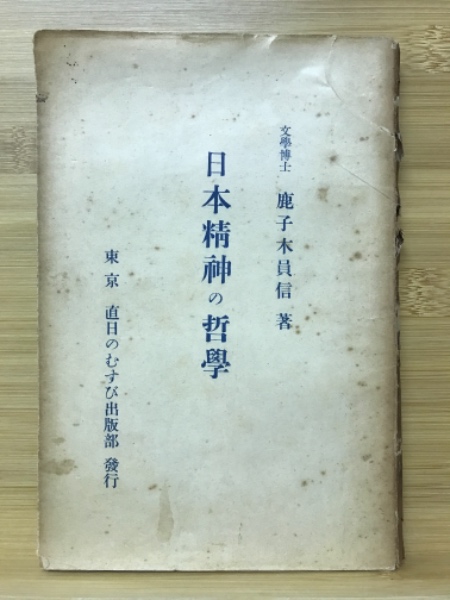 文學博士 鹿子木員信 著
日本精神の哲學
東京 直日のむすび出版部 發行